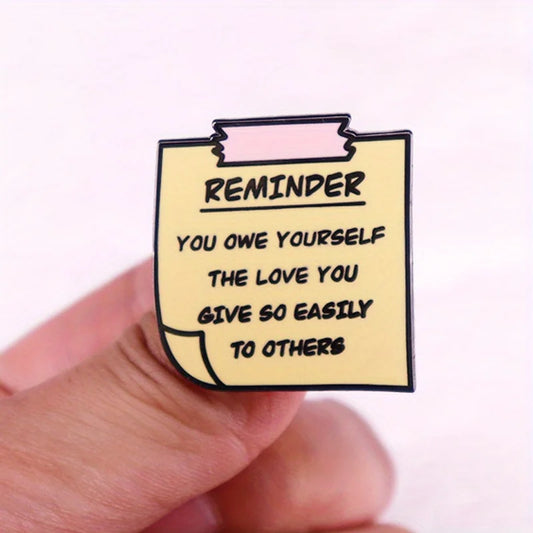 REMINDER
YOU OWE YOURSELF
THE LOVE YOU
GIVE SO EASILY
TO OTHERS